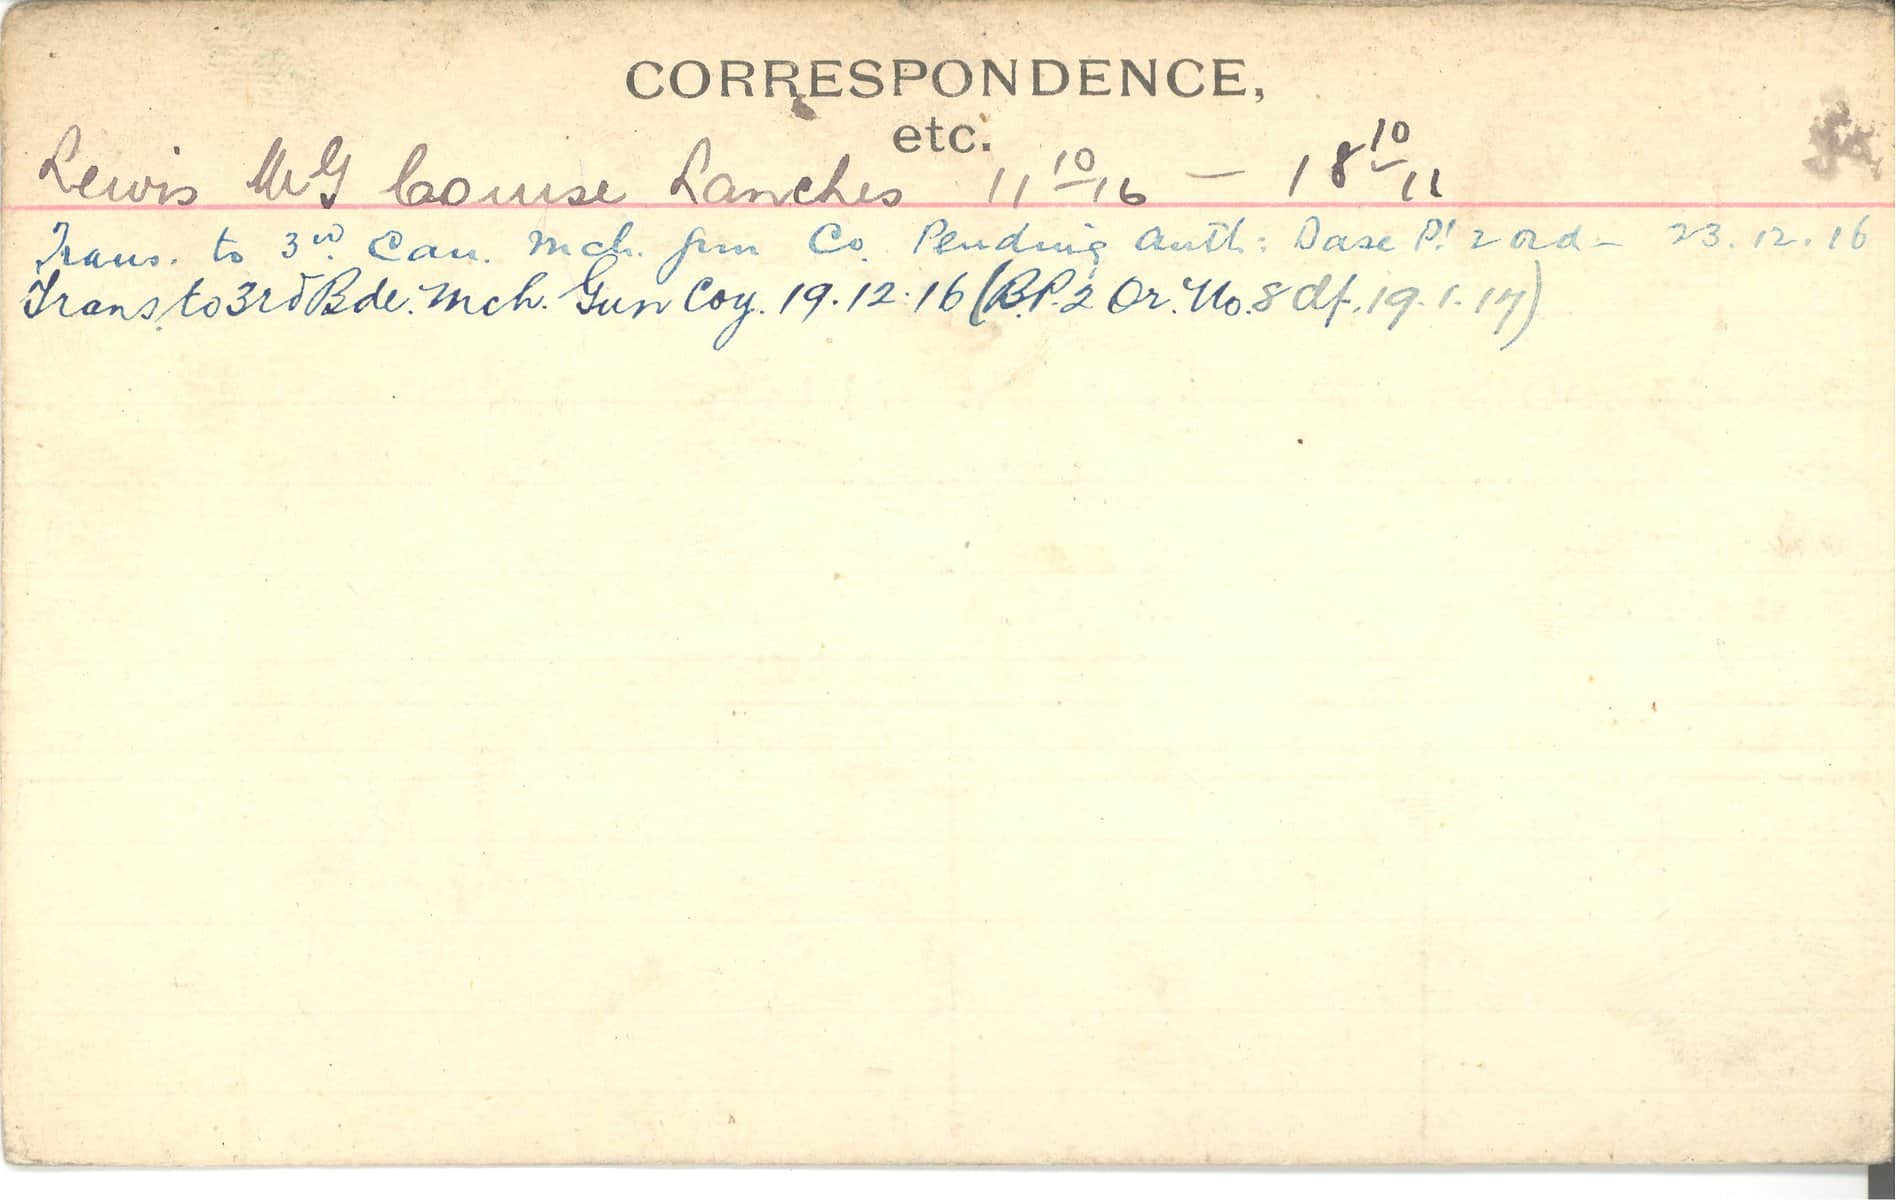 CORRESPONDENCE,
etc.
Lewis MG Course Ranches 11 10/16 — 18 10/11
Trans. to 3rd Can. Mch. Gun Co. Pending Auth: Base Pt 2 Ord - 23.12.16
Trans. to 3rd Bde. Mch. Gun Coy. 19.12.16 (B.P.2 Or. No. 8 df. 19.1.17)